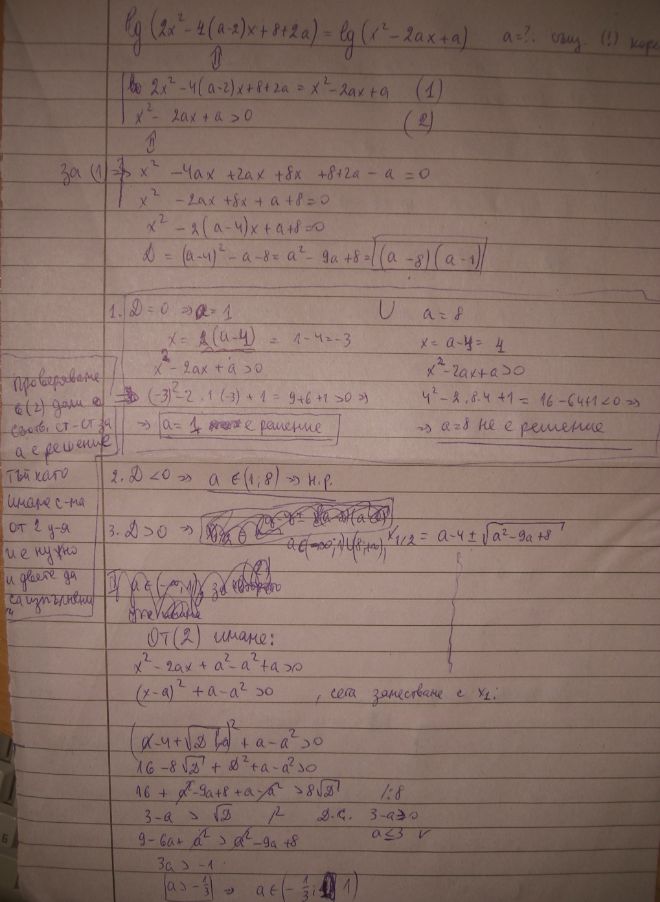 lg(2x² - 4(a-2)x + 8 + 2a) = lg(x² - 2ax + a) a=?
2x² - 4(a-2)x + 8 + 2a = x² - 2ax + a (1)
x² - 2ax + a > 0 (2)
За (1) => x² - 4ax + 2ax + 8x + 8 + 2a - a = 0
x² - 2ax + 8x + a + 8 = 0
x² - 2(a-4)x + a + 8 = 0
D = (a-4)² - a - 8 = a² - 9a + 8 = (a-8)(a-1)
1. D = 0 => a = 1 U a = 8
x = 2(a-4) = 1 - 4 = -3 x = a - 4 = 4
x² - 2ax + a > 0 x² - 2ax + a > 0
(-3)² - 2.1(-3) + 1 = 9 + 6 + 1 > 0 => 4² - 2.8.4 + 1 = 16 - 64 + 1 < 0 =>
=> a = 1 е решение => a = 8 не е решение
Проверяваме
с (2) дали
ст-ст за
a е решение
тъй като
имаме с-ма
от 2 у-я
и е нужно
и двете да
са изпълнени
2. D < 0 => a ∈ (1; 8) => н.р.
3. D > 0 => x₁/₂ = a - 4 ± √a² - 9a + 8
От (2) имаме:
x² - 2ax + a² - a² + a > 0
(x-a)² + a - a² > 0 , сега заместваме с x₁:
(a - 4 + √D - a)² + a - a² > 0
16 - 8√D + D² + a - a² > 0
16 + a² - 9a + 8 + a - a² > 8√D /:8
3 - a > √D /² Д.С. 3 - a ≥ 0
9 - 6a + a² > a² - 9a + 8 a ≤ 3 ✓
3a > -1
a > -1/3 => a ∈ (-1/3; 1)